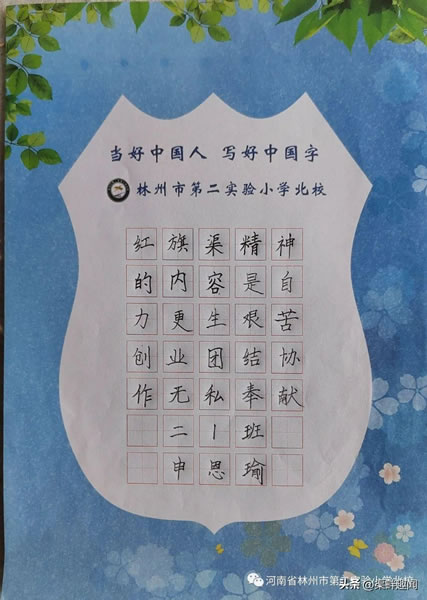 当好中国人 写好中国字
林州市第二实验小学北校
红旗渠精神
的内容是自
力更生艰苦
创业团结协
作无私奉献
二1班
申思瑜
河南省林州市第二实验小学北校
头条